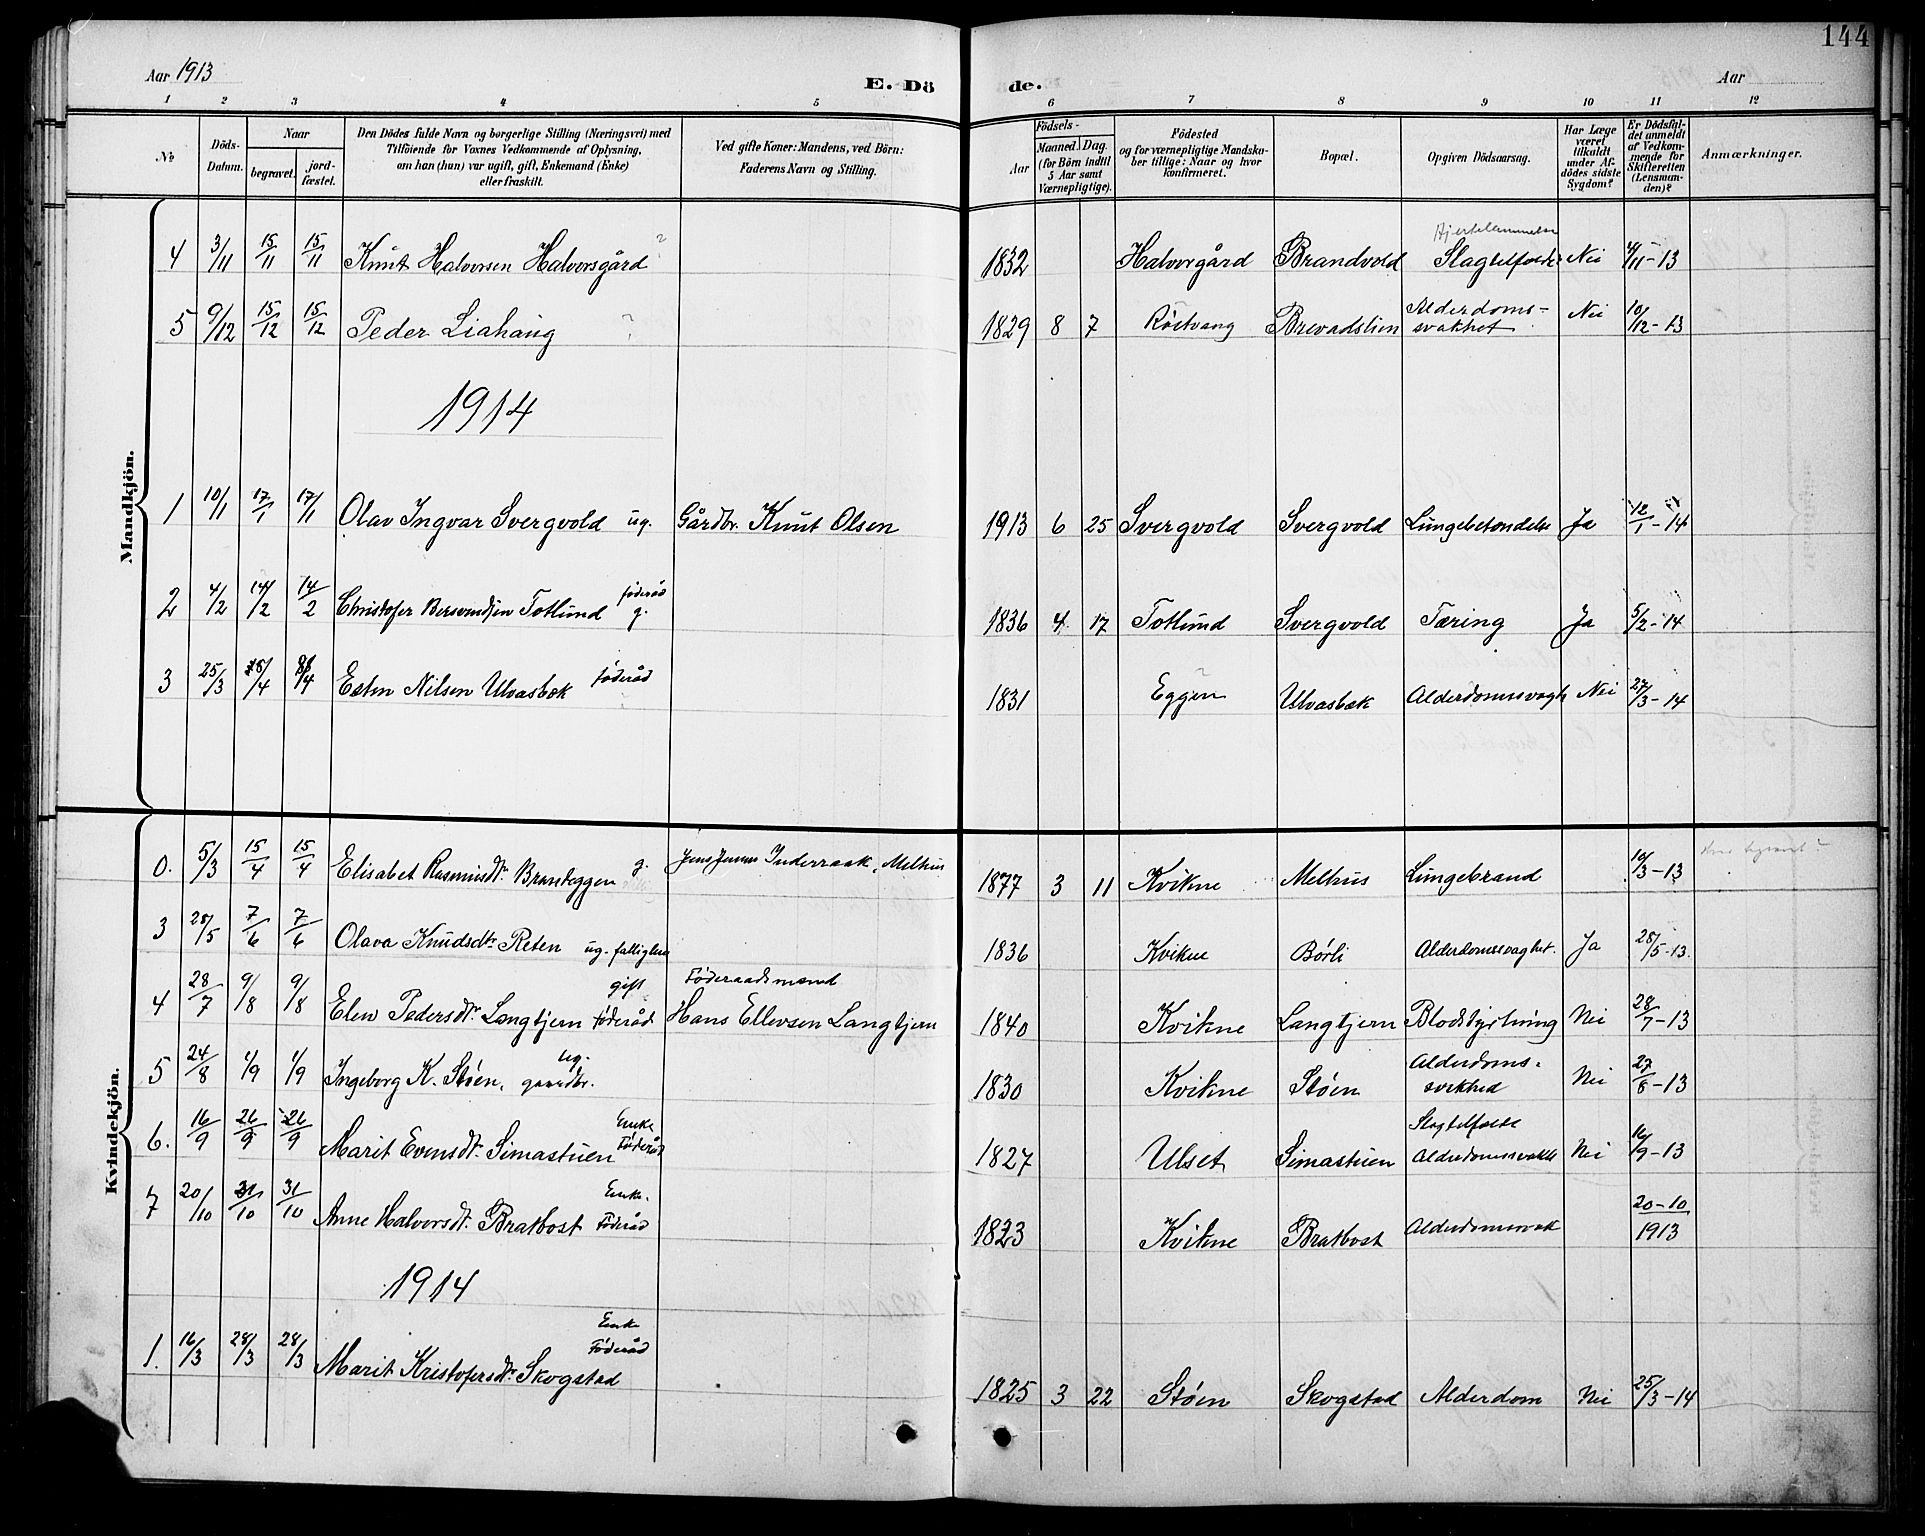 144
Aar 1913
E. Dö
de.
Aar
1 2 3 4 5 6 7 8 9 10 11 12
№
Döds-Datum.
Naar
begravet.
jord-fæstet.
Den Dödes fulde Navn og borgerlige Stilling (Næringsvei) med
Tilföiende for Voxnes Vedkommende af Oplysning,
om han (hun) var ugift, gift, Enkemand (Enke)
eller fraskilt.
Ved gifte Koner: Mandens, ved Börn:
Faderens Navn og Stilling.
Födsels-
Aar
Maaned. Dag.
(for Börn indtil
5 Aar samt
Værnepligtige).
Födested
og for værnepligtige Mandska-
ber tillige: Naar og hvor
konfirmeret.
Bopæl.
Opgiven Dödsaarsag.
Har Læge
været
tilkaldt
under Af-
dödes sidste
Sygdom?
Er Dödsfal-
det anmeldt
af Vedkom-
mende for
Skifteretten
(Lensman-
den)?
Anmærkninger.
Mandkjön.
Hjertelammelse
4 3/11 15/11 15/11 Knut Halvorsen Halvorsgård ? 1832 Halvorgård Brandvold Slagtilfælde Nei 4/11-13
5 9/12 15/12 15/12 Peder Liahaug ? 1829 8 7 Röstvang Brevadslien Alderdoms-
svakhet Nei 10/12-13
1914
1 10/1 17/1 17/1 Olav Ingvar Svergvold ug. Gårdbr. Knut Olsen 1913 6 25 Svergvold Svergvold Lungebetændelse Ja 12/1-14
føderåd
2 4/2 14/2 14/2 Christofer Bersvendsen Totlund g. 1836 4 17 Totlund Svergvold Tæring Ja 5/2-14
3 25/3 /4 /4 Esten Nilsen Ulvasbæk føderåd 1831 Eggen Ulvasbæk Alderdomssvagh Nei 27/3-14
Kvindekjön.
0. 5/3 15/4 15/4 Elisabet Rasmusdtr Brandeggen g. Jens Jensen Inderraak, Melhus 1877 3 11 Kvikne Melhus Lungebrand 10/3-13
3 28/5 7/6 7/6 Olava Knudsdtr Reten ug. fattiglem 1836 Kvikne Børli Alderdomssvaghet. Ja 28/5-13.
gift Føderaadsmand
4 28/7 9/8 9/8 Elen Pedersdtr Langtjern føderåd Hans Ellevsen Langtjern 1840 Kvikne Langtjern Blodstyrtning Nei 28/7-13
ug.
5 24/8 1/9 1/9 Ingeborg K. Støen, gaardbr. 1830 Kvikne Støen Alderdoms-
svekhed Nei 27/8-13
Enke
6. 16/9 26/9 26/9 Marit Evensdtr Simastuen Føderåd 1827 Ulset Simastuen Slagtilfælde
Alderdomssvakh Nei 16/9-13
Enke.
7 20/10 31/10 31/10 Anne Halvorsdtr. Bratbost Føderåd 1823 Kvikne Bratbost Alderdomssvak 20-10
1913
1914
Enke
Føderåd
1. 16/3 28/3 28/3 Marit Kristofersdtr Skogstad 1825 3 22 Støen Skogstad Alderdom Nei 25/3-14